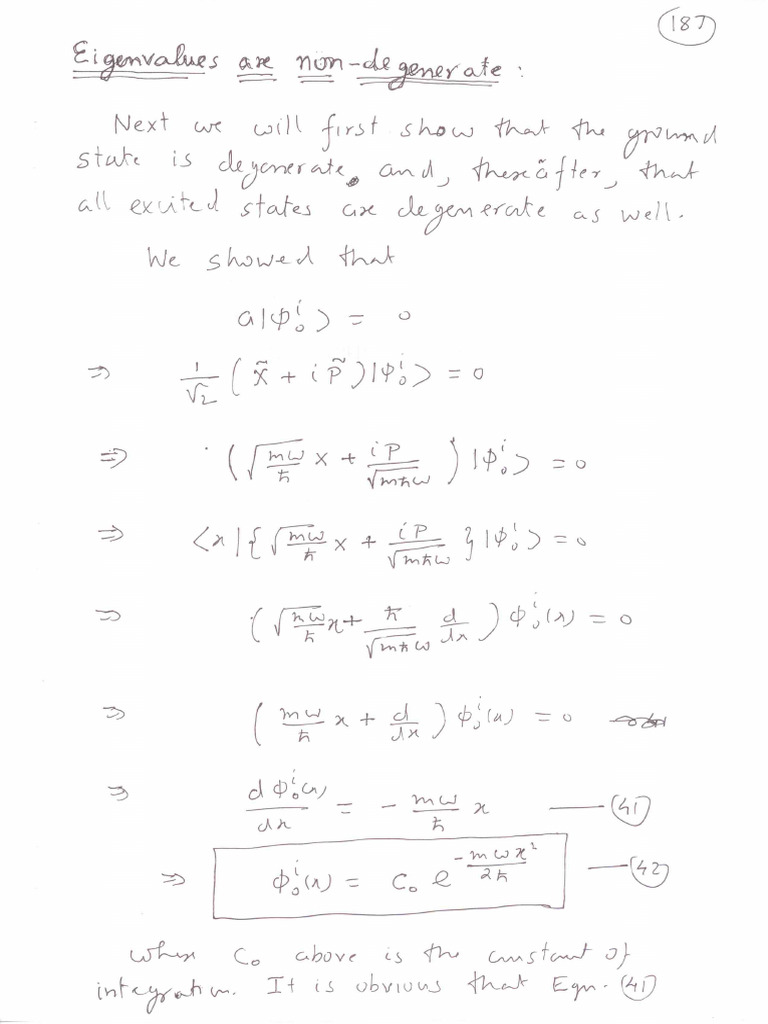 187
Eigenvalues are non-degenerate :
Next we will first show that the ground
state is degenerate and, thereafter, that
all excited states are degenerate as well.
We showed that
a|ϕ₀ⁱ⟩ = 0
⇒ 1/√2 (x̃ + i p̃)|ϕ₀ⁱ⟩ = 0
⇒ (√(mω/ħ) x + iP/√(mħω)) |ϕ₀ⁱ⟩ = 0
⇒ ⟨x|{√(mω/ħ) x + iP/√(mħω)}|ϕ₀ⁱ⟩ = 0
⇒ (√(mω/ħ) x + ħ/√(mħω) d/dx) ϕ₀ⁱ(x) = 0
⇒ (mω/ħ x + d/dx) ϕ₀ⁱ(x) = 0
⇒ dϕ₀ⁱ(x)/dx = - mω/ħ x — (41)
⇒ ϕ₀ⁱ(x) = C₀ e^(-mωx²/2ħ) — (42)
where C₀ above is the constant of
integration. It is obvious that Eqn. (41)